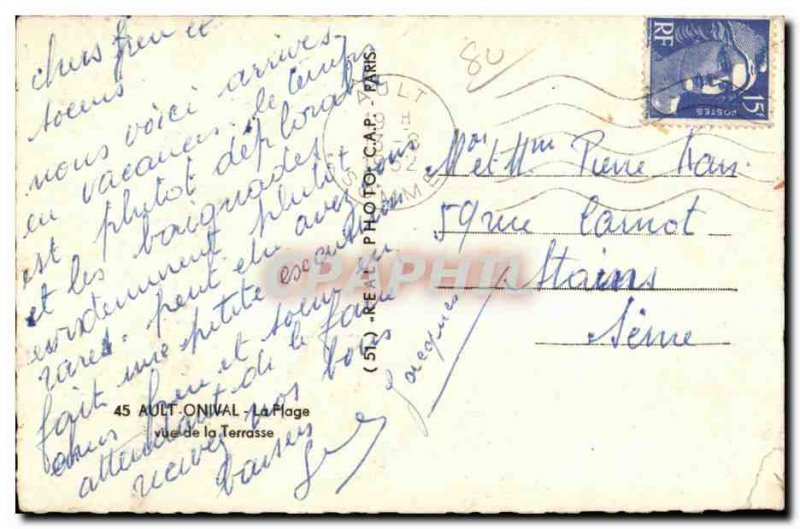 chers frere et
soeur
nous voici arrivés
en vacances. le temps
est plutot déplorable
et les baignades
evidemment plutot
rares. peut etre avez vous
fait une petite excursion
chers frere et soeur en
attendant de le faire
recevez nos bons
baisers
Jacques
45 AULT-ONIVAL - La Plage
vue de la Terrasse
(51) "REAL-PHOTO" C.A.P. - PARIS
AULT
SOMME
52
80
RF
15F
POSTES
Mr et Mme Pierre
59 rue Carnot
Stains
Seine
CPAPHIL